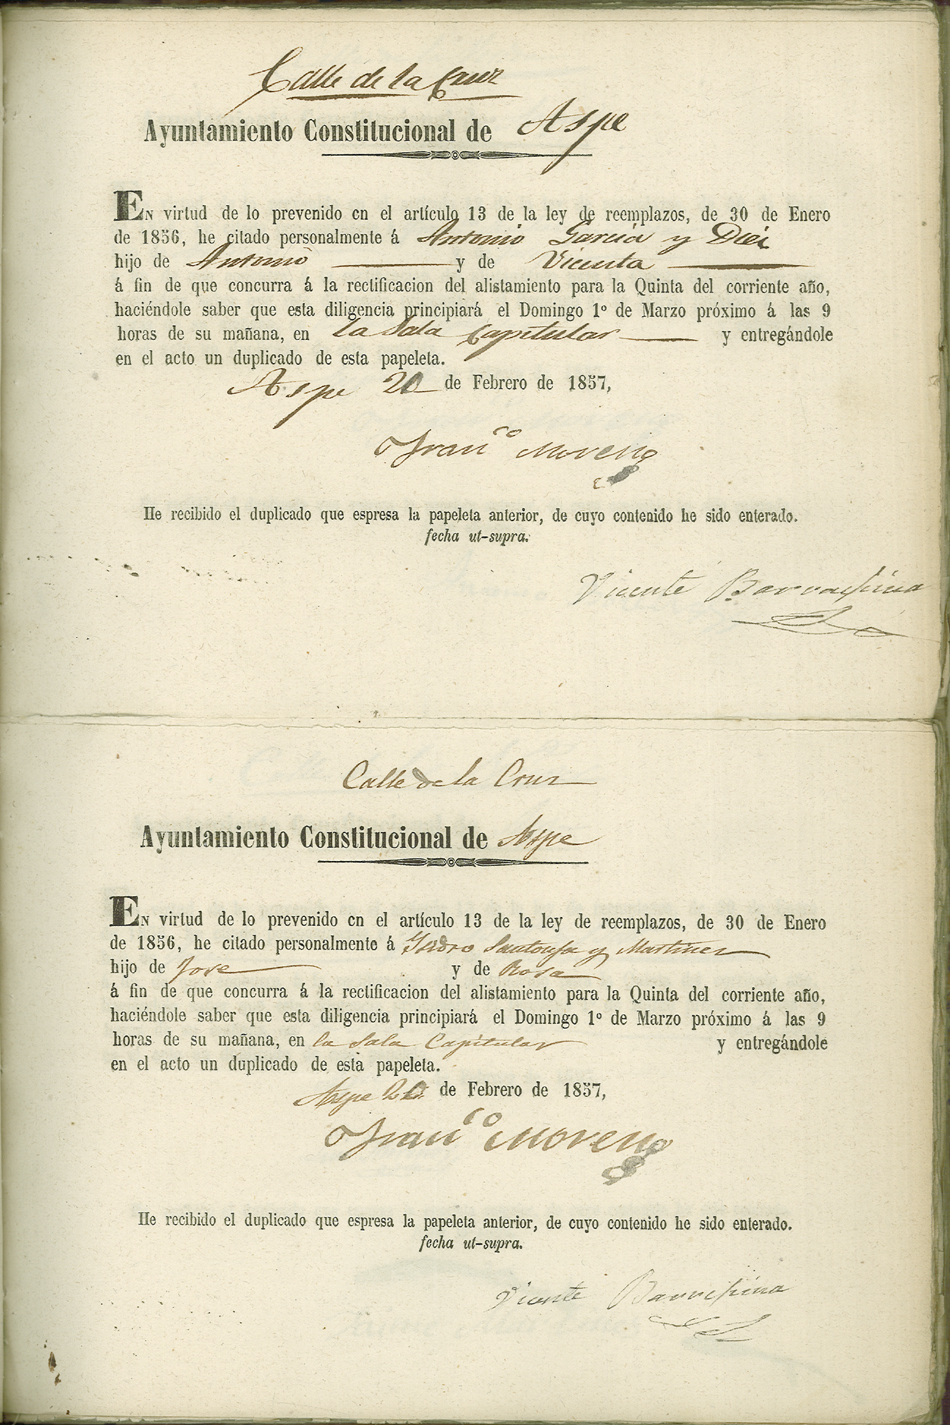 Calle de la Cruz
Ayuntamiento Constitucional de Aspe
En virtud de lo prevenido en el artículo 13 de la ley de reemplazos, de 30 de Enero
de 1856, he citado personalmente á Antonio Garcia y Diez
hijo de Antonio y de Vicenta
á fin de que concurra á la rectificacion del alistamiento para la Quinta del corriente año,
haciéndole saber que esta diligencia principiará el Domingo 1º de Marzo próximo á las 9
horas de su mañana, en la Sala Capitular y entregándole
en el acto un duplicado de esta papeleta.
Aspe de Febrero de 1857,
Franco Moreno
He recibido el duplicado que espresa la papeleta anterior, de cuyo contenido he sido enterado.
fecha ut-supra.
Vicente
Calle de la Cruz
Ayuntamiento Constitucional de Aspe
En virtud de lo prevenido en el artículo 13 de la ley de reemplazos, de 30 de Enero
de 1856, he citado personalmente á Ysidro y Martinez
hijo de Jose y de Rosa
á fin de que concurra á la rectificacion del alistamiento para la Quinta del corriente año,
haciéndole saber que esta diligencia principiará el Domingo 1º de Marzo próximo á las 9
horas de su mañana, en la Sala Capitular y entregándole
en el acto un duplicado de esta papeleta.
Aspe de Febrero de 1857,
Franco Moreno
He recibido el duplicado que espresa la papeleta anterior, de cuyo contenido he sido enterado.
fecha ut-supra.
Vicente